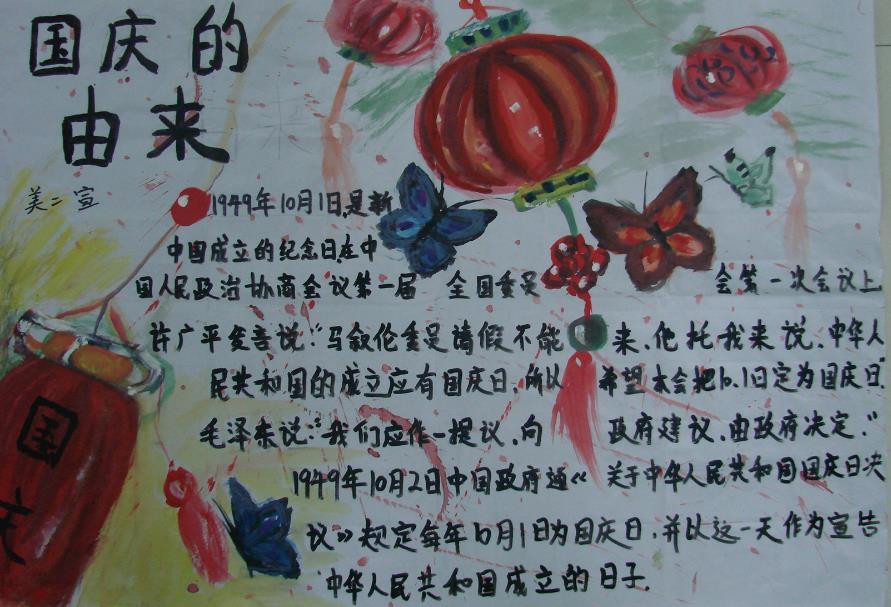 国庆的
由来
美二宣
1949年10月1日是新
中国成立的纪念日.在中
国人民政治协商会议第一届 全国委员 会第一次会议上
许广平发言说:"马叙伦委员请假不能来.他托我来说.中华人
民共和国的成立应有国庆日.所以 希望本会把10.1日定为国庆日
毛泽东说:"我们应作一提议.向 政府建议.由政府决定."
1949年10月2日中国政府通《关于中华人民共和国国庆日决
议》规定每年10月1日为国庆日.并以这一天作为宣告
中华人民共和国成立的日子.
国庆